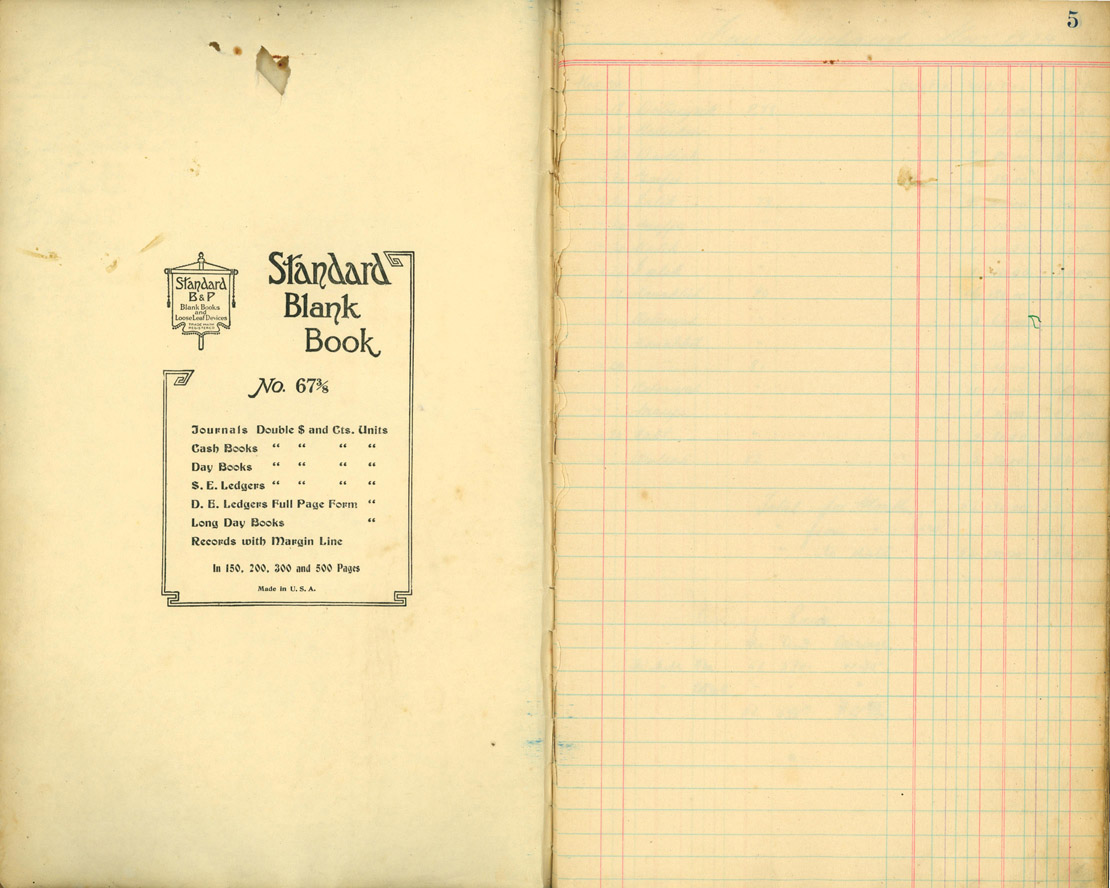 Standard
B & P
Blank Books
and
Loose Leaf Devices
TRADE MARK
REGISTERED
Standard
Blank
Book
No. 67⅜
Journals Double $ and Cts. Units
Cash Books “ “ “ “
Day Books “ “ “ “
S. E. Ledgers “ “ “ “
D. E. Ledgers Full Page Form “
Long Day Books “
Records with Margin Line
In 150, 200, 300 and 500 Pages
Made in U. S. A.
5